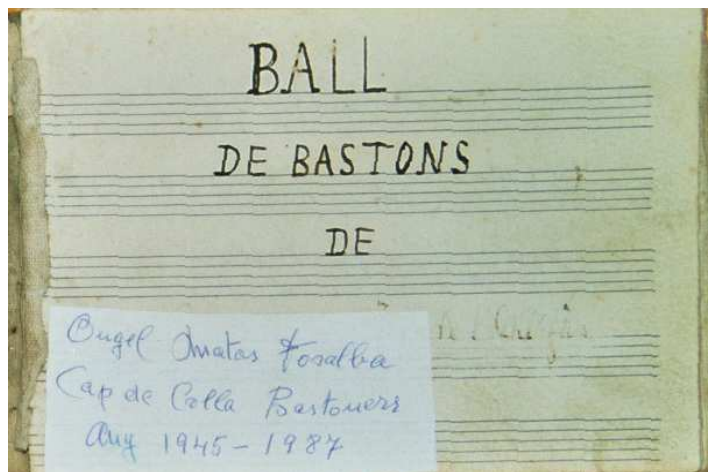 BALL
DE BASTONS
DE
Angel Amatas Fosalba
Cap de Colla Bastoners
Any 1945-1987